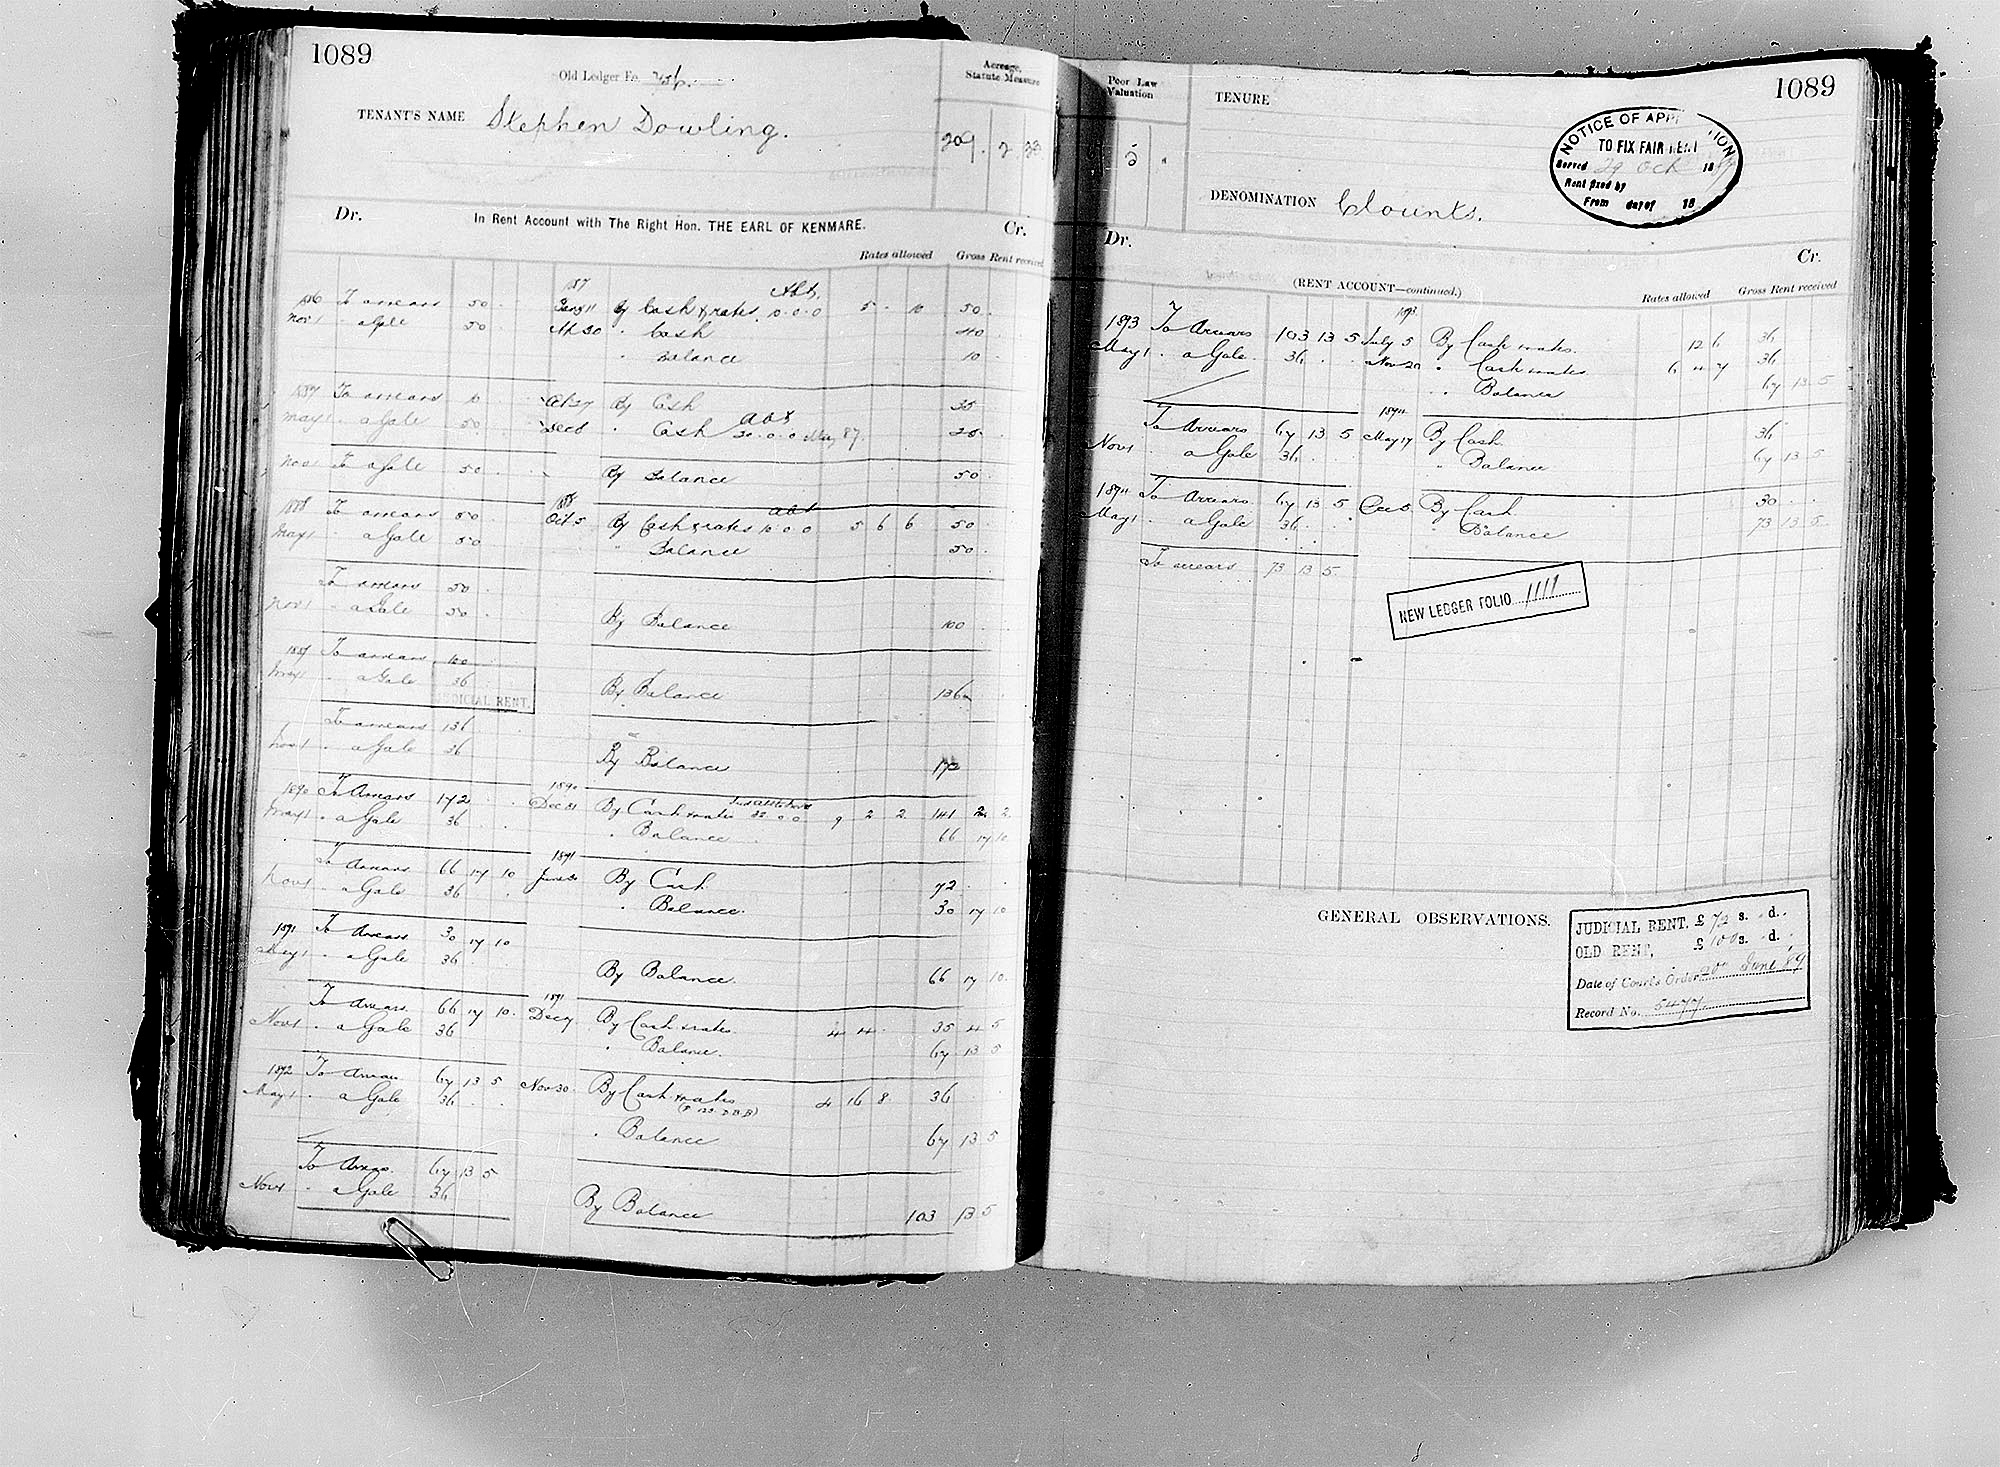 1089
Old Ledger Fo.
Acreage,
Statute Measure
TENANT'S NAME Stephen Dowling.
209 . 2 . 23
Dr. In Rent Account with The Right Hon. THE EARL OF KENMARE. Cr.
Rates allowed Gross Rent received
187
Abt.
1886 To arrears 50 Jany 11 By Cash & rates 10.0.0 5 - 10 50
Nov 1 " a Gale 50 20 " Cash 40
" Balance 10
1887 To arrears 10 27 By Cash 35
May 1 " a Gale 50 Dec 8 " Cash Abt 20.0.0 May 87. 25
Nov 1 To a Gale 50 By Balance 50
1888 To arrears 50 188 Oct 5 By Cash & rates abt 10.0.0 5 6 6 50
May 1 " a Gale 50 " Balance 50
To arrears 50
Nov 1 " a Gale 50 By Balance 100
1889 To arrears 100
May 1 " a Gale 36 By Balance 136
JUDICIAL RENT.
To arrears 136
Nov 1 " a Gale 36 By Balance 172
1890 To Arrears 172 1890 Dec 31 By Cash & rates 32.0.0 9 2 2 141 2 2
May 1 " a Gale 36 " Balance 66 17 10
To Arrears 66 17 10 1891 June 30 By Cash 72
Nov 1 " a Gale 36 " Balance. 30 17 10
1891 To Arrears 30 17 10
May 1 " a Gale 36 By Balance. 66 17 10
To Arrears. 66 17 10 1891 Dec 7 By Cash & rates. 4 4 35 4 5
Nov 1 " a Gale 36 " Balance. 67 13 5
1892 To Arrears 67 13 5 Nov 30 By Cash & rates 4 16 8 36
May 1 " a Gale 36
" Balance 67 13 5
To Arrears. 67 13 5
Nov 1 " a Gale 36 By Balance 103 13 5
Poor Law
Valuation
TENURE
1089
NOTICE OF APPLICATION
TO FIX FAIR RENT
Served 29 Oct 1887
Rent fixed by
From day of 18
DENOMINATION Clounts.
Dr. Cr.
(RENT ACCOUNT—continued.)
Rates allowed Gross Rent received
1893
1893 To Arrears 103 13 5 July 5 By Cash & rates. 12 6 36
May 1 " a Gale 36 Nov 20 " Cash & rates 6 4 7 36
" " Balance 67 13 5
1894
To Arrears 67 13 5 May 17 By Cash 36
Nov 1 " a Gale 36 " Balance 67 13 5
1894 To Arrears 67 13 5 Dec 5 By Cash 30
May 1 " a Gale 36 " Balance 73 13 5
To arrears 73 13 5
NEW LEDGER FOLIO 1111
GENERAL OBSERVATIONS.
JUDICIAL RENT. £ 72 s. d.
OLD RENT, £ 100 s. d.
Date of Court's Order 20th June 89
Record No. 5477